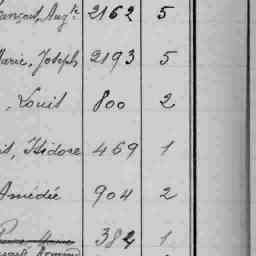 Augte 2162 5
Marie, Joseph 2193 5
, Louis 800 2
Isidore 469 1
Amédée 904 2
382 1